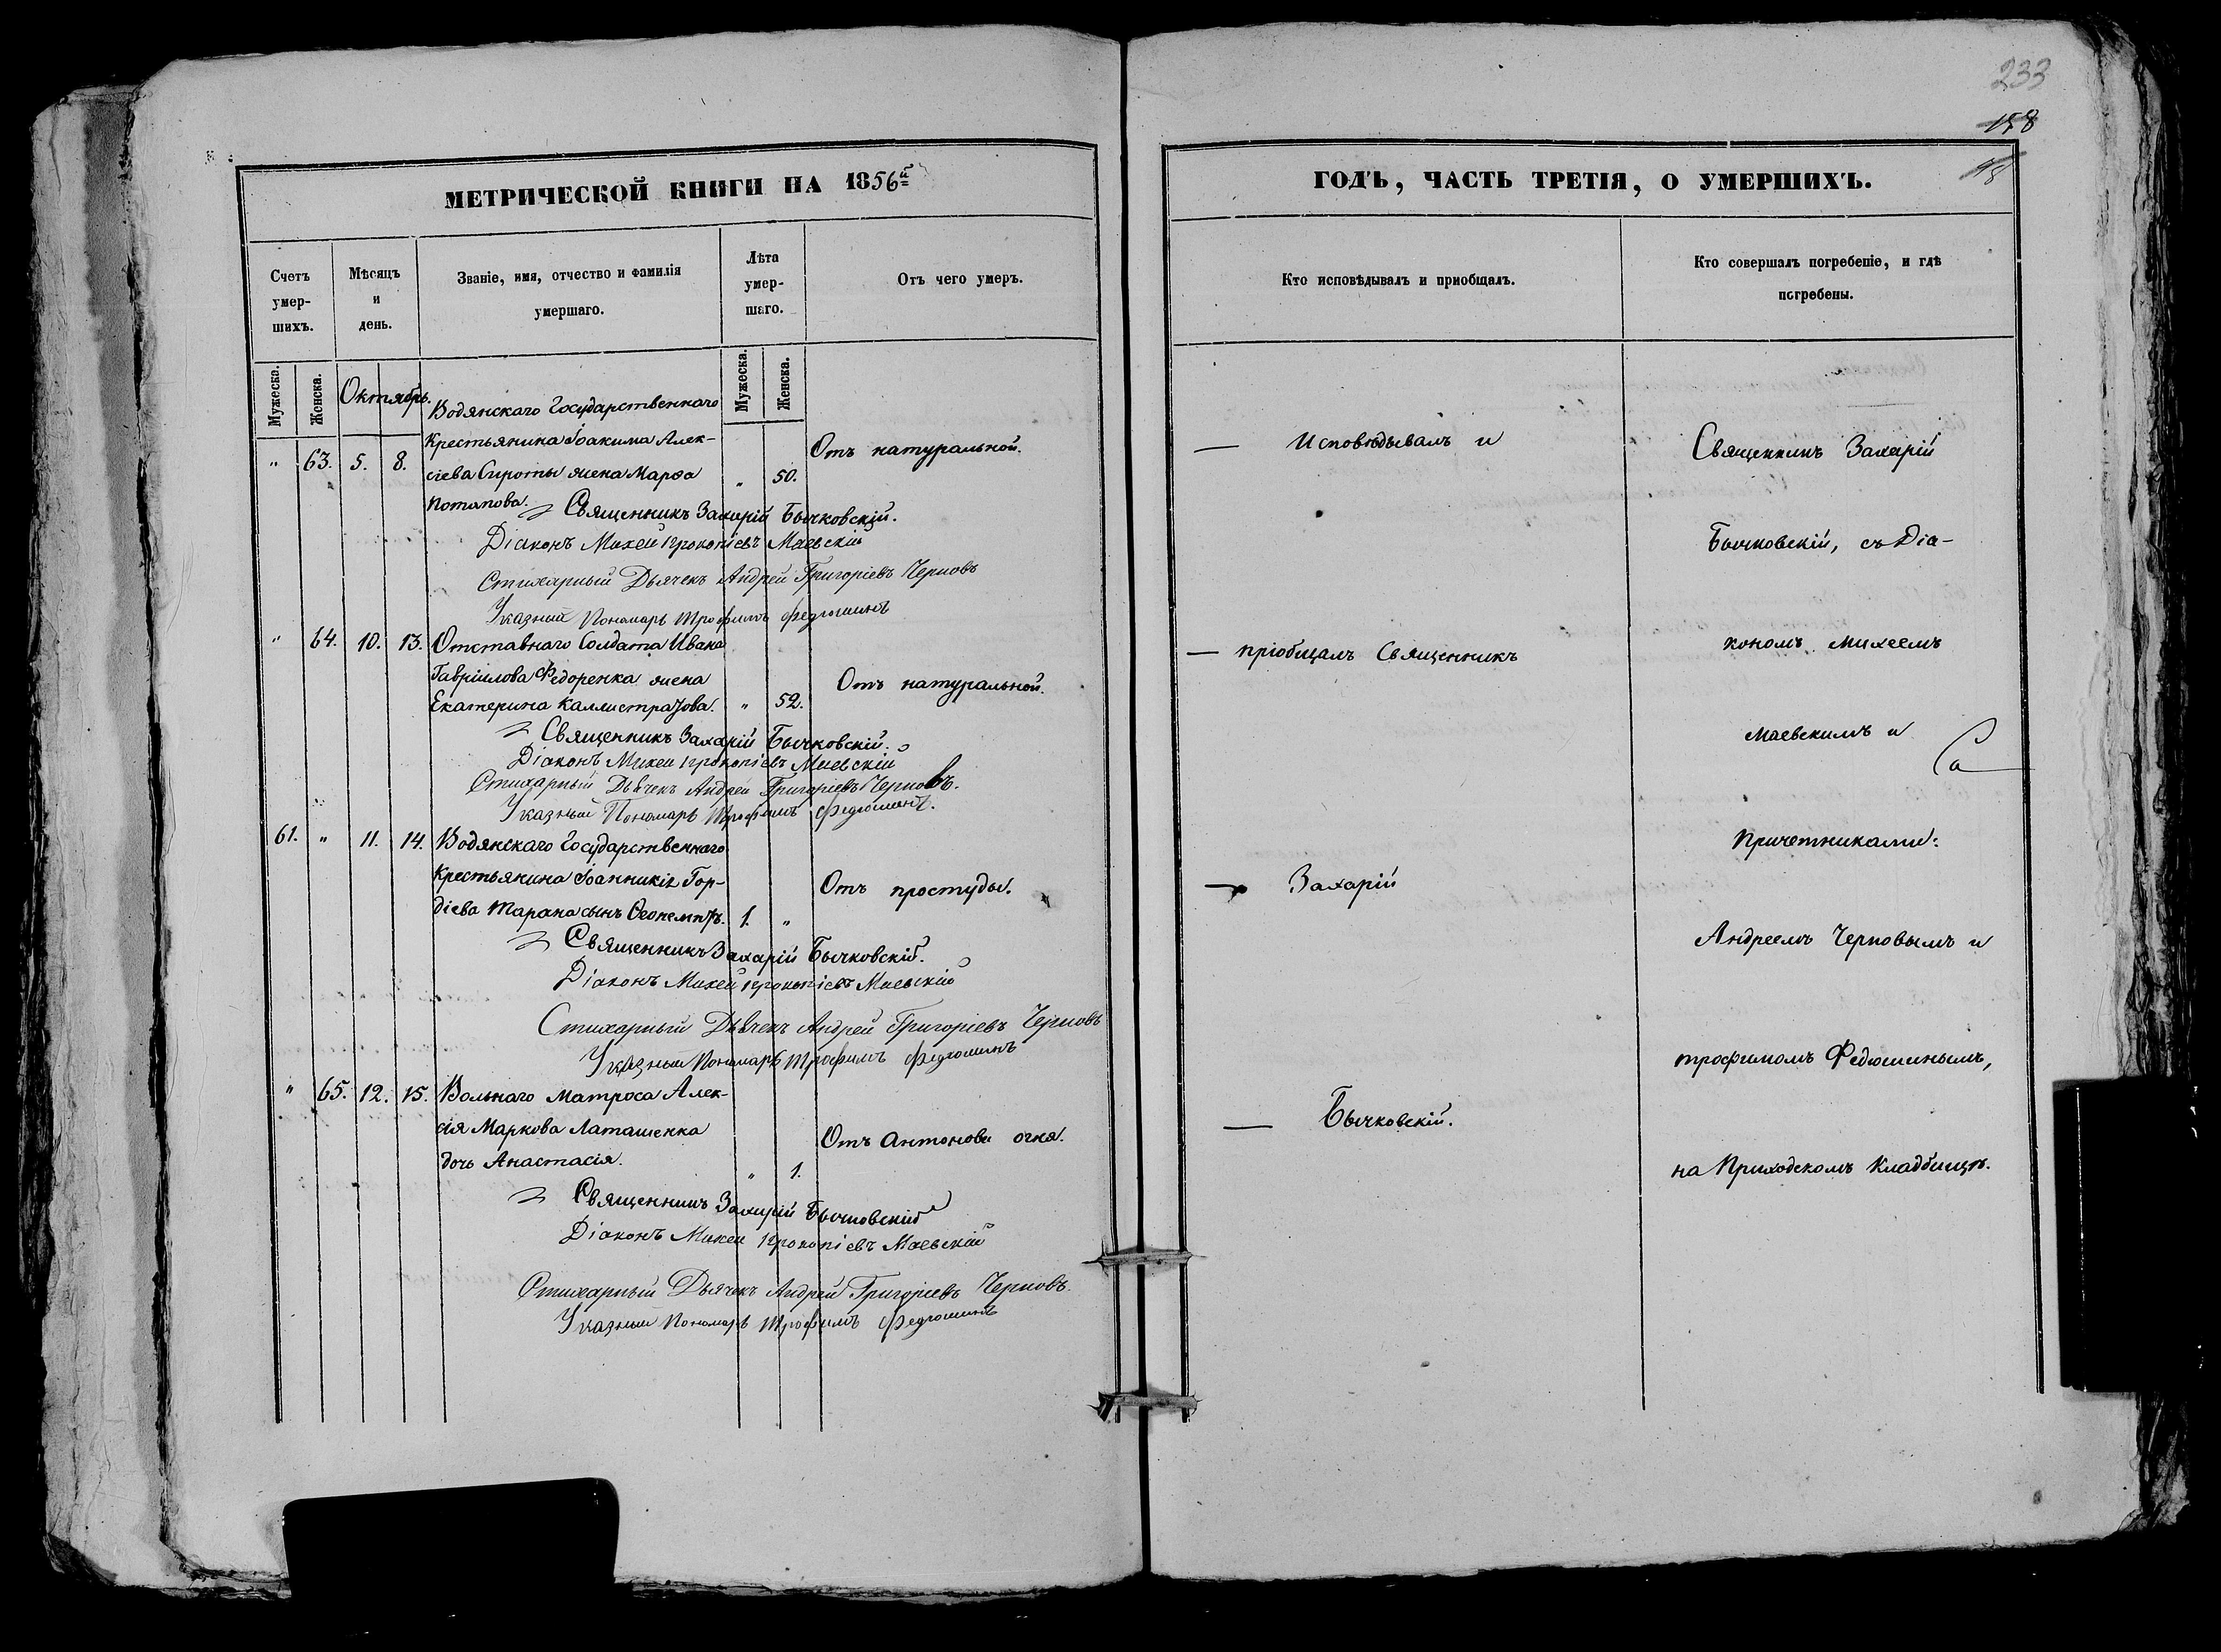 233
158
МЕТРИЧЕСКОЙ КНИГИ НА 1856й
Счетъ умер-шихъ.
Мѣсяцъ и день.
Званіе, имя, отчество и фамилія умершаго.
Лѣта умер-шаго.
Отъ чего умеръ.
Мужеска.
Женска.
Октябрь.
Мужеска.
Женска.
Водянскаго Государственнаго
Крестьянина Іоакима Алек-
" 63. 5. 8. сіева Сироты жена Марѳа " 50. Отъ натуральной.
Потапова. Священникъ Захарій Бычковскій.
Діаконъ Михей Прокопіевъ Маевскій
Стихарный Дьячекъ Андрей Григоріевъ Черновъ
Указный Пономарь Трофимъ Федюшинъ
" 64. 10. 13. Отставнаго Солдата Ивана
Гавріилова Федоренка жена
Екатерина Каллистратова. " 52. Отъ натуральной.
Священникъ Захарій Бычковскій.
Діаконъ Михей Прокопіевъ Маевскій
Стихарный Дьячекъ Андрей Григоріевъ Черновъ.
Указный Пономарь Трофимъ Федюшинъ.
61. " 11. 14. Водянскаго Государственнаго
Крестьянина Іоанникія Гор-
діева Тарана сынъ Ѳеопемптъ. 1. " Отъ простуды.
Священникъ Захарій Бычковскій.
Діаконъ Михей Прокопіевъ Маевскій
Стихарный Дьячекъ Андрей Григоріевъ Черновъ
Указный Пономарь Трофимъ Федюшинъ
" 65. 12. 15. Вольнаго Матроса Алек-
сія Маркова Латашенка
дочь Анастасія. " 1. Отъ антонова огня.
Священникъ Захарій Бычковскій
Діаконъ Михей Прокопіевъ Маевскій
Стихарный Дьячекъ Андрей Григоріевъ Черновъ.
Указный Пономарь Трофимъ Федюшинъ
ГОДЪ, ЧАСТЬ ТРЕТІЯ, О УМЕРШИХЪ.
Кто исповѣдывалъ и приобщалъ.
Кто совершалъ погребеніе, и гдѣ погребены.
— Исповѣдывалъ и
— пріобщалъ Священникъ
— Захарій
— Бычковскій.
Священникъ Захарій
Бычковскій, съ Діа-
кономъ Михеемъ
Маевскимъ и
Причетниками:
Андреемъ Черновымъ и
Трофимомъ Федюшинымъ,
на Приходскомъ Кладбищѣ.